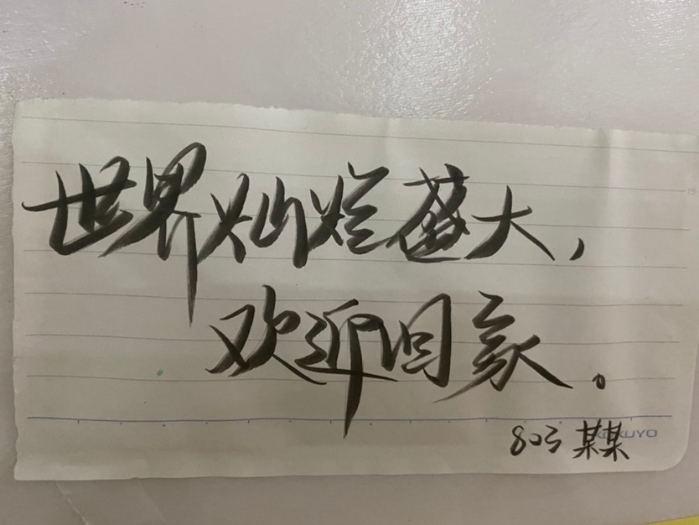 世界灿烂盛大，
欢迎回家。
803 某某
KOKUYO